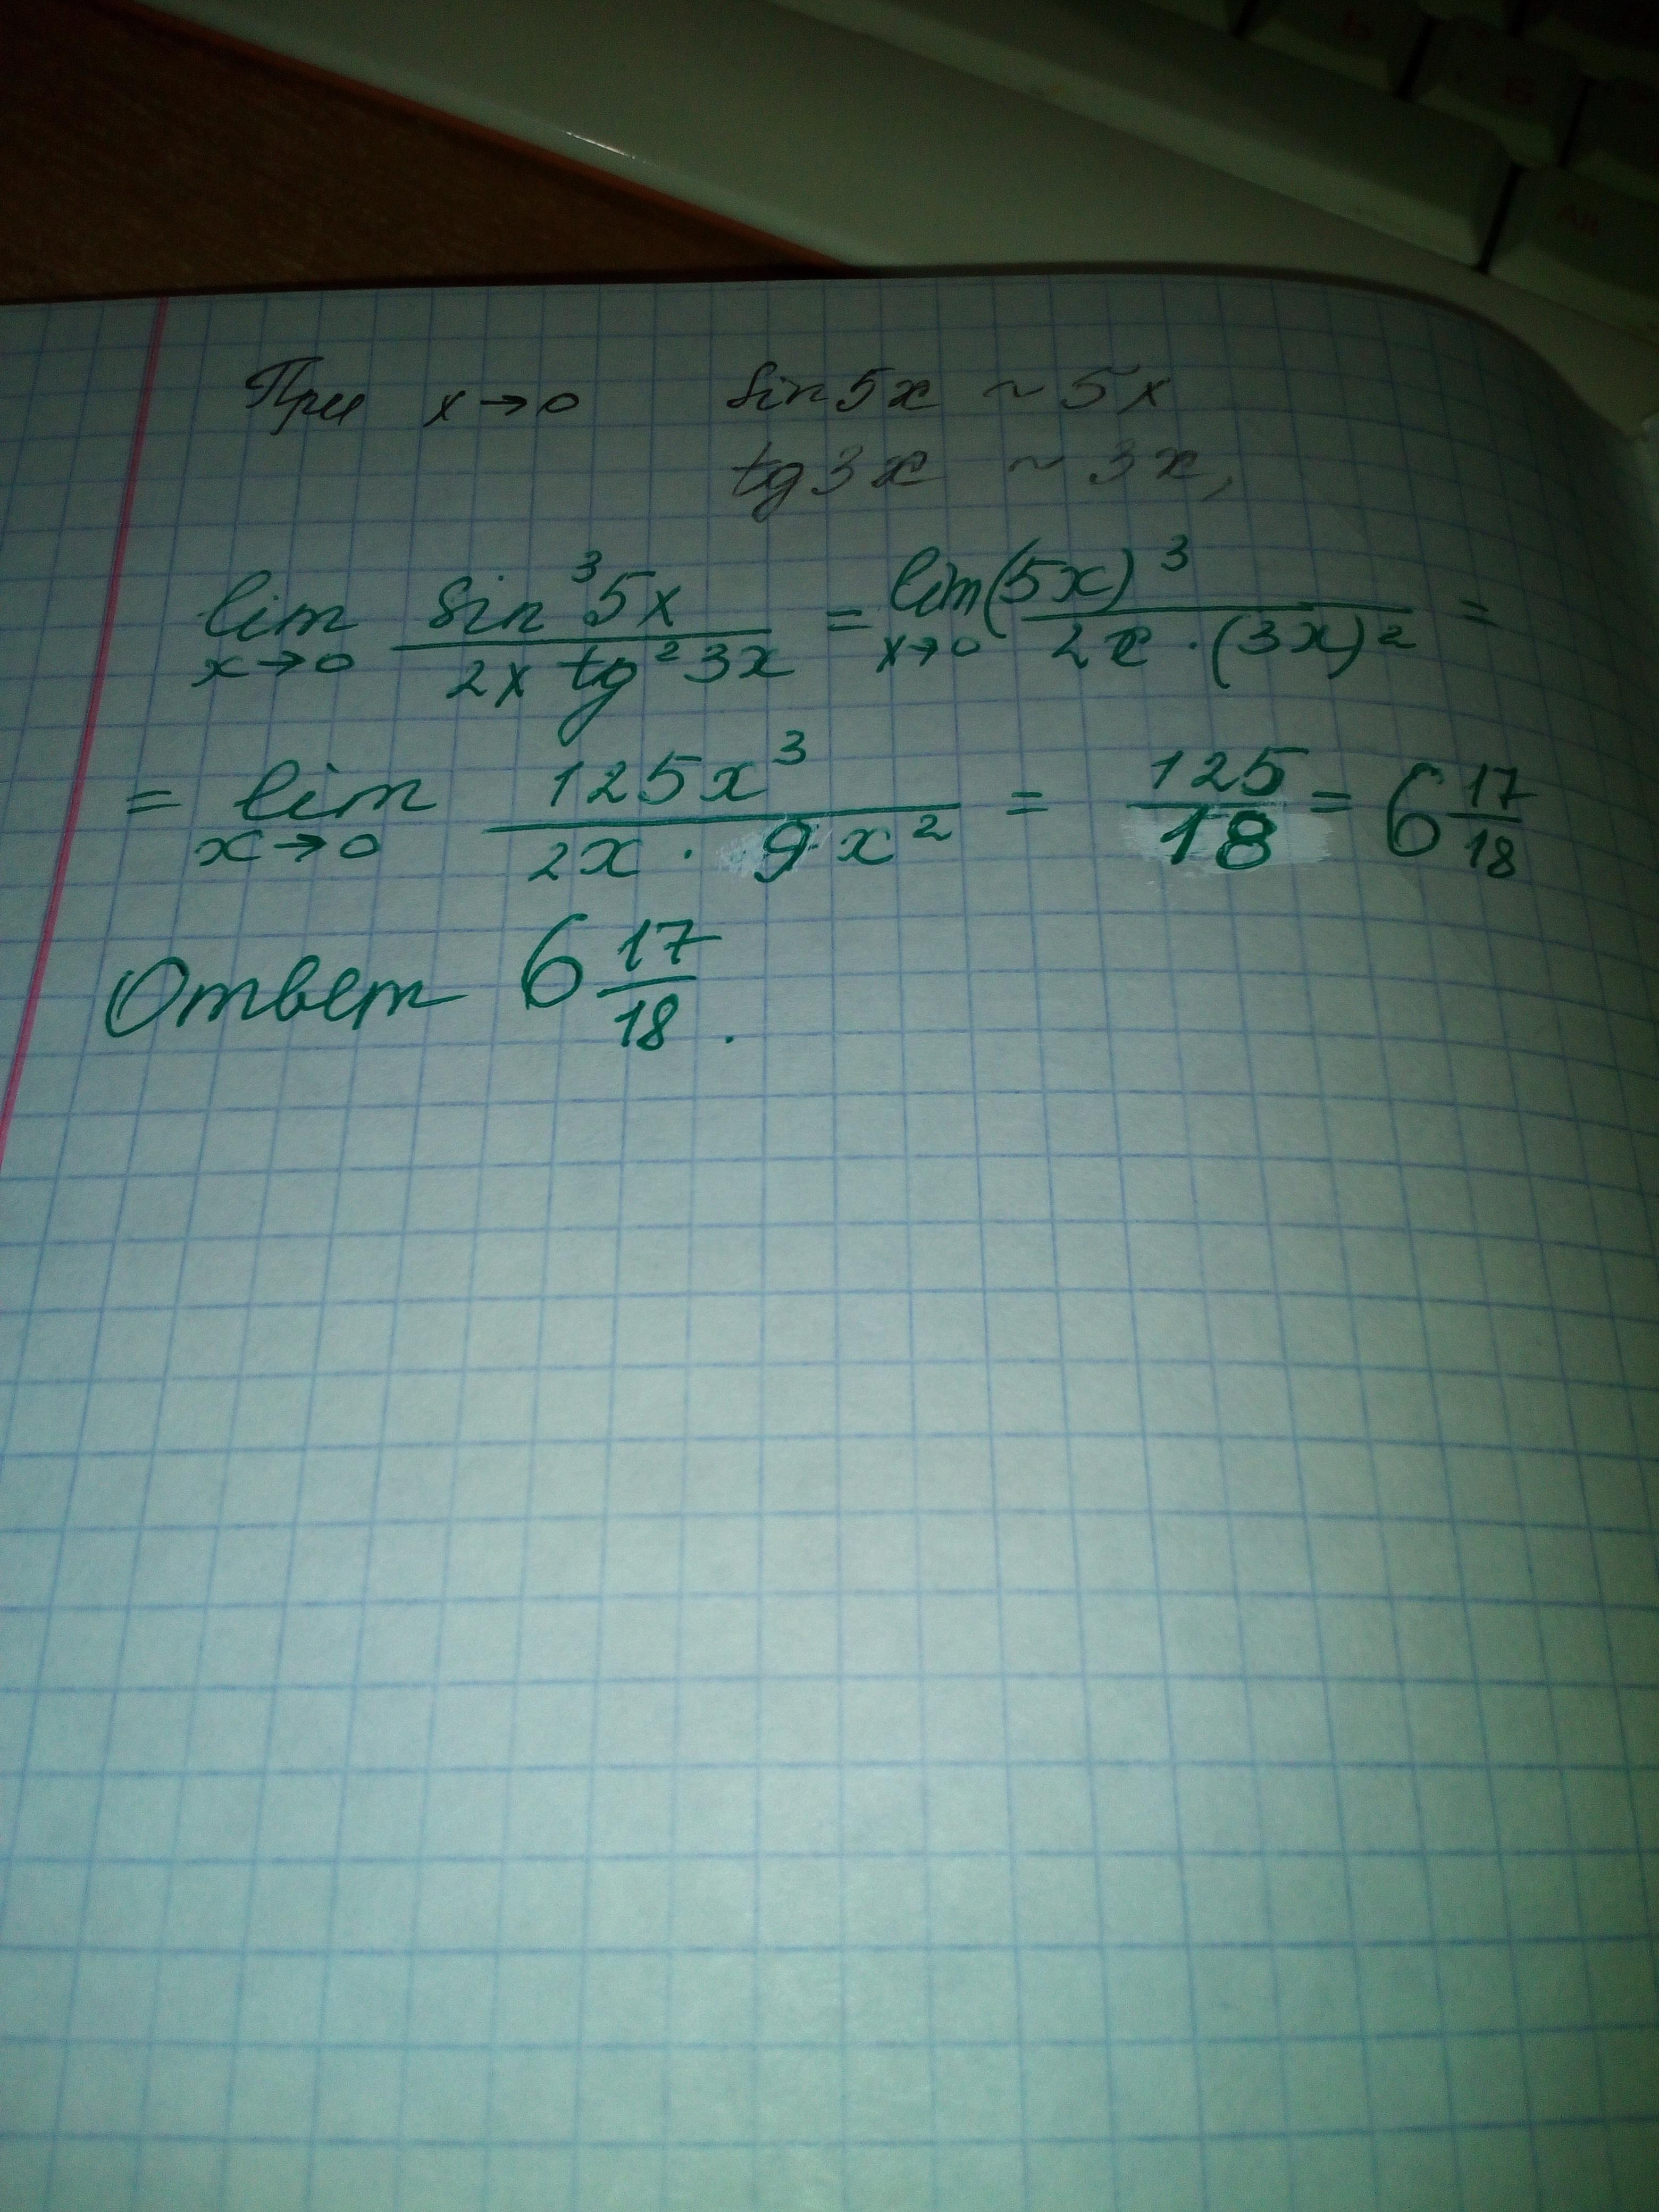 При x→0 sin5x ~ 5x
tg3x ~ 3x,
lim x→0 sin³5x / 2x tg²3x = lim x→0 (5x)³ / 2x · (3x)² =
= lim x→0 125x³ / 2x · 9x² = 125/18 = 6 17/18
Ответ 6 17/18 .